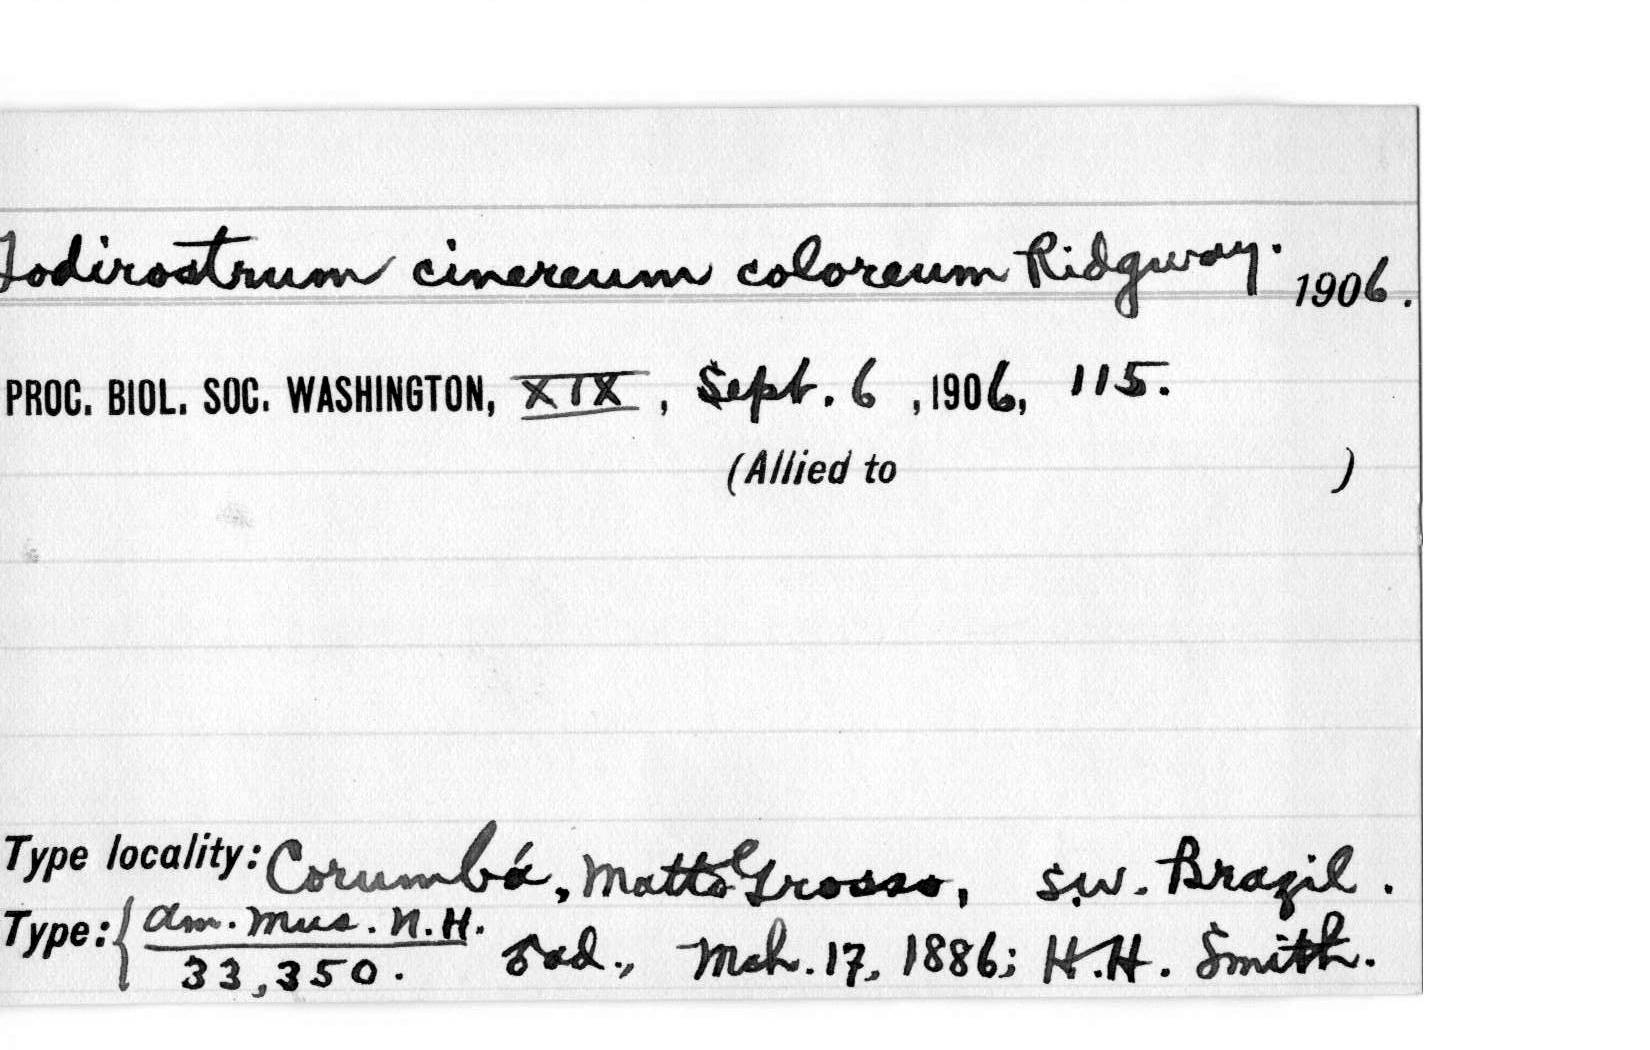 Todirostrum cinereum coloreum Ridgway. 1906.
PROC. BIOL. SOC. WASHINGTON, XIX, Sept. 6, 1906, 115.
(Allied to )
Type locality: Corumbá, Matto Grosso, s.w. Brazil.
Type: { Am. Mus. N.H. ad., Mch. 17, 1886; H.H. Smith.
33,350.